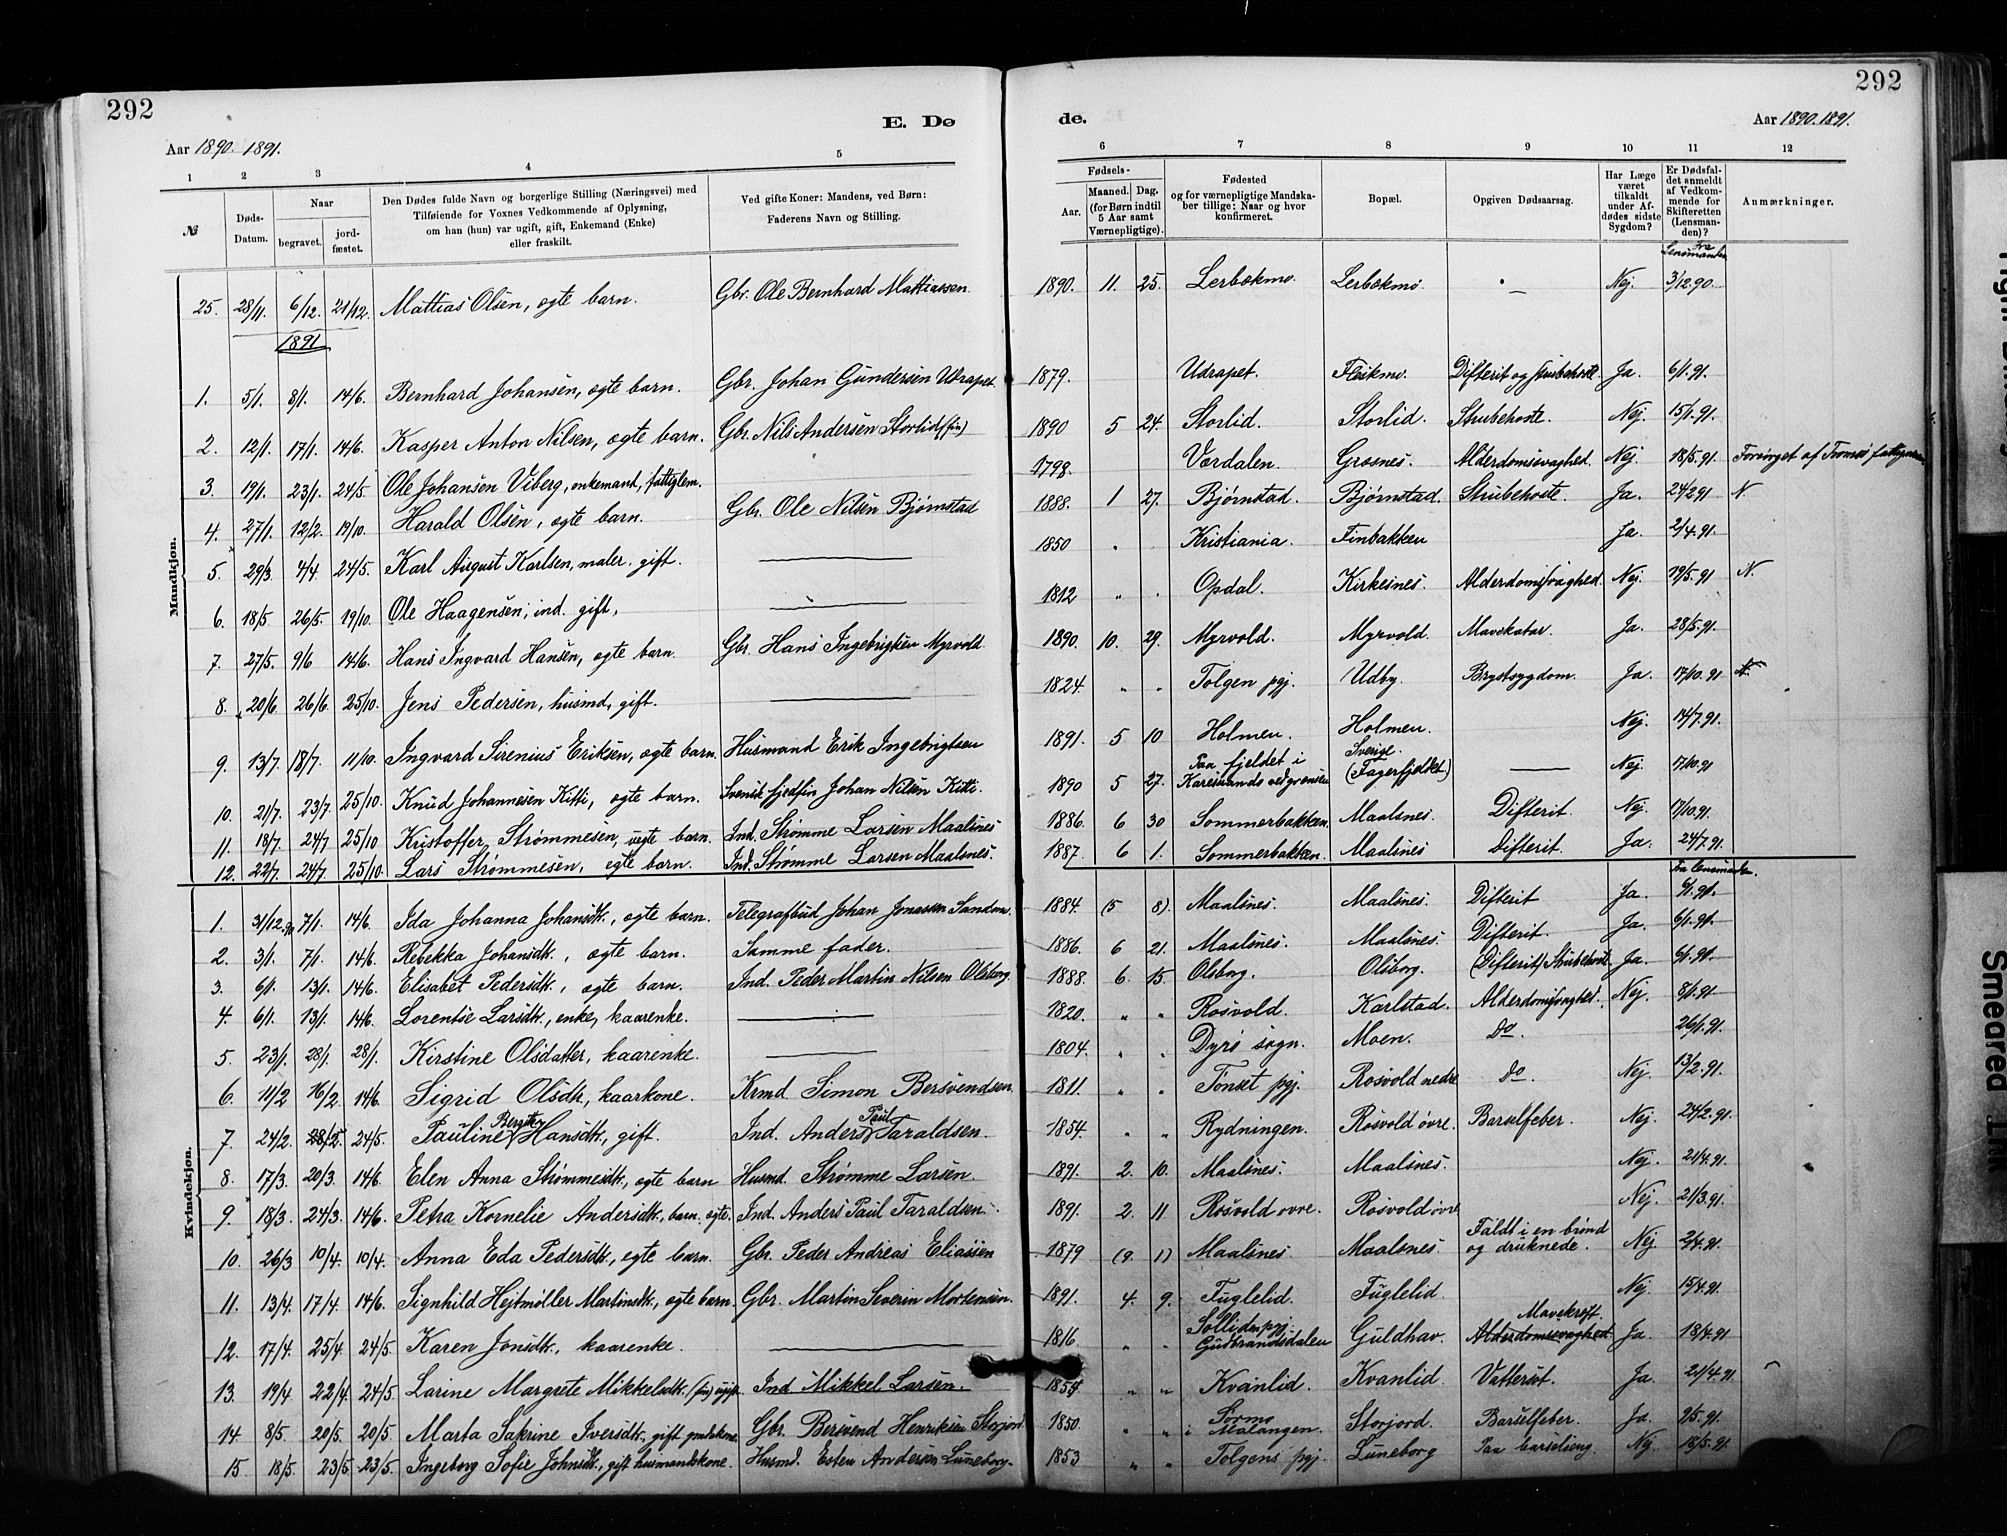 292
E. Dø
Aar 1890. 1891.
1 2 3 4 5
№ Døds-Datum. Naar begravet. jordfæstet. Den Dødes fulde Navn og borgerlige Stilling (Næringsvei) med Tilføiende for Voxnes Vedkommende af Oplysning, om han (hun) var ugift, gift, Enkemand (Enke) eller fraskilt. Ved gifte Koner: Mandens, ved Børn: Faderens Navn og Stilling.
Mandkjøn.
25. 28/11. 6/12. 21/12. Mattias Olsen, ægte barn. Gbr. Ole Bernhard Mattiassen
1891
1. 5/1. 8/1. 14/6. Bernhard Johansen, ægte barn. Gbr. Johan Gundersen Udrapet
2. 12/1. 17/1. 14/6. Kasper Anton Nilsen, ægte barn. Gbr. Nils Andersen Storlid (fin)
3. 19/1. 23/1. 24/5. Ole Johansen Viberg, enkemand, fattiglem.
4. 27/1. 12/2. 19/10. Harald Olsen, ægte barn. Gbr. Ole Nilsen Bjørnstad
5. 29/3. 4/4. 24/5. Karl August Karlsen, maler, gift.
6. 18/5. 26/5. 19/10. Ole Haagensen, ind. gift,
7. 27/5. 9/6 14/6. Hans Ingvard Hansen, ægte barn. Gbr. Hans Ingebrigtsen Myrvold
8. 20/6. 26/6. 25/10. Jens Pedersen, husmd, gift.
9. 13/7. 18/7. 11/10. Ingvard Sirenius Eriksen, ægte barn. Husmand Erik Ingebrigtsen
10. 21/7. 23/7. 25/10. Knud Johannesen Kitti, ægte barn. Svensk fjedfin Johan Nilsen Kitti.
11. 18/7. 24/7 25/10 Kristoffer Strømmesen, ægte barn. Ind. Strømme Larsen Maalsnes
12. 22/7. 24/7. 25/10. Lars Strømmesen, ægte barn. Ind. Strømme Larsen Maalsnes.
Kvindekjøn.
1. 31/12.90 7/1. 14/6. Ida Johanna Johansdt., ægte barn. Telegrafbud Johan Jonassen
2. 3/1. 7/1. 14/6. Rebekka Johansdt., ægte barn. Samme fader.
3. 6/1. 13/1. 14/6. Elisabet Pedersdt., ægte barn. Ind. Peder Martin Nilsen Olsborg.
4. 6/1. 13/1. 14/6. Lorentse Larsdt., enke, kaarenke.
5. 23/1. 28/1. 28/1. Kirstine Olsdatter, kaarenke.
6. 11/2 16/2. 14/6. Sigrid Olsdt., kaarkone. Krmd Simon Bersvendsen
7. 24/2. 28/2. 24/5. Pauline Bergitte Hansdt., gift. Ind. Anders Paul Taraldsen.
8. 17/3. 20/3. 14/6. Elen Anna Strømmesdt., ægte barn Husmd. Strømme Larsen.
9. 18/3. 24/3. 14/6. Petra Kornelie Andersdt., barn. ægte. Ind. Anders Paul Taraldsen.
10. 26/3 10/4. 10/4. Anna Eda Pedersdt., ægte barn. Gbr. Peder Andreas Eliassen
11. 13/4. 17/4. 14/6. Signhild Hejtmøller Martinsdt., ægte barn. Gbr. Martin Severin Mortensen.
12. 17/4. 25/4. 24/5. Karen Jonsdt., kaarenke.
13. 19/4. 22/4. 24/5. Larine Margrete Mikkelsdt. (fin) ugift. Ind Mikkel Larsen.
14 8/5. 20/5. 20/5. Marta Sakrine Iversdt., gift gmdskone. Gbr. Bersvend Henriksen Storjord
15 18/5. 23/5. 23/5. Ingeborg Sofie Johnsdt., gift husmandskone. Husmd. Esten Andersen Luneborg.
292
de.
Aar 1890.1891.
6 7 8 9 10 11 12
Fødsels- Aar. Maaned. Dag. (for Børn indtil 5 Aar samt Værnepligtige). Fødested og for værnepligtige Mandskaber tillige: Naar og hvor konfirmeret. Bopæl. Opgiven Dødsaarsag. Har Læge været tilkaldt under Afdødes sidste Sygdom? Er Dødsfaldet anmeldt af Vedkommende for Skifteretten (Lensmanden)? Anmærkninger.
Fra Lensmanden
1890. 11. 25. Lerbækmo. Lerbækmo. Nej. 3/12.90.
1879. Udrapet. Fleskmo. Difterit og Strubehoste. Ja. 6/1.91.
1890 5 24. Storlid. Storlid. Strubehoste. Nej. 15/1.91.
1798. Værdalen. Grosnes. Alderdomssvaghed. Nej. 18/5.91. Forsørget af Tromsø
1888. 1 27. Bjørnstad. Bjørnstad. Strubehoste. Ja. 24/2.91 N.
1850 Kristiania. Finbakken Ja. 2/4.91.
1812 Opdal. Kirkesnes. Alderdomssvaghed. Nej. 19/5.91 N.
1890. 10. 29. Myrvold. Myrvold. Mavekatar. Ja. 28/5.91.
1824. Tolgen pgj. Udby. Brystsygdom. Ja. 17/10.91 N.
1891. 5 10 Holmen. Holmen. Nej. 14/7.91.
1890 5 27. Paa fjeldet i Karesuando ved grænsen Sverige. (Fagerfjeldet) Nej. 17/10.91
1886. 6 30 Sommerbakken. Maalsnes. Difterit. Nej. 17/10.91.
1887. 6 1. Sommerbakken. Maalsnes Difterit. Ja. 24/7.91.
Fra Lensmanden.
1884. (5 8). Maalsnes. Maalsnes. Difterit Ja. 6/1.91.
1886. 6 21. Maalsnes. Maalsnes. Difterit. Ja. 6/1.91.
1888. 6. 15. Olsborg. Olsborg. (Difterit) Strubehoste. Ja. 6/1.91.
1820. Rosvold. Karlstad. Alderdomssvaghed. Nej. 8/1.91
1804. Dyrø sogn. Moen. Do. 26/1.91.
1811. Tønset pgj. Rosvold nedre Do. Nej. 13/2.91.
1854. Rydningen. Rosvold øvre. Barselfeber. Nej. 24/2.91.
1891. 2. 10. Maalsnes. Maalsnes. Nej. 21/4.91.
1891. 2. 11 Rosvold øvre. Rosvold øvre Nej. 21/3.91.
1879 (9. 1) Maalsnes Maalsnes. Faldt i en brønd og druknede. Nej. 2/4.91.
1891. 4. 9. Fuglelid. Fuglelid. Nej. 15/4.91.
1816. Solliden pgj. Gudbrandsdalen Guldhav. Mavekræft. Alderdomssvaghed. Ja. 18/4.91
1854 Kvanlid. Kvanlid. Vattersot. Ja. 21/4.91
1850. Sørmo i Malangen. Storjord. Barselfeber. Ja. 2/5.91.
1853 Tolgens pgj. Luneborg Paa barselseng. Nej. 18/5.91.
Smeared Ink